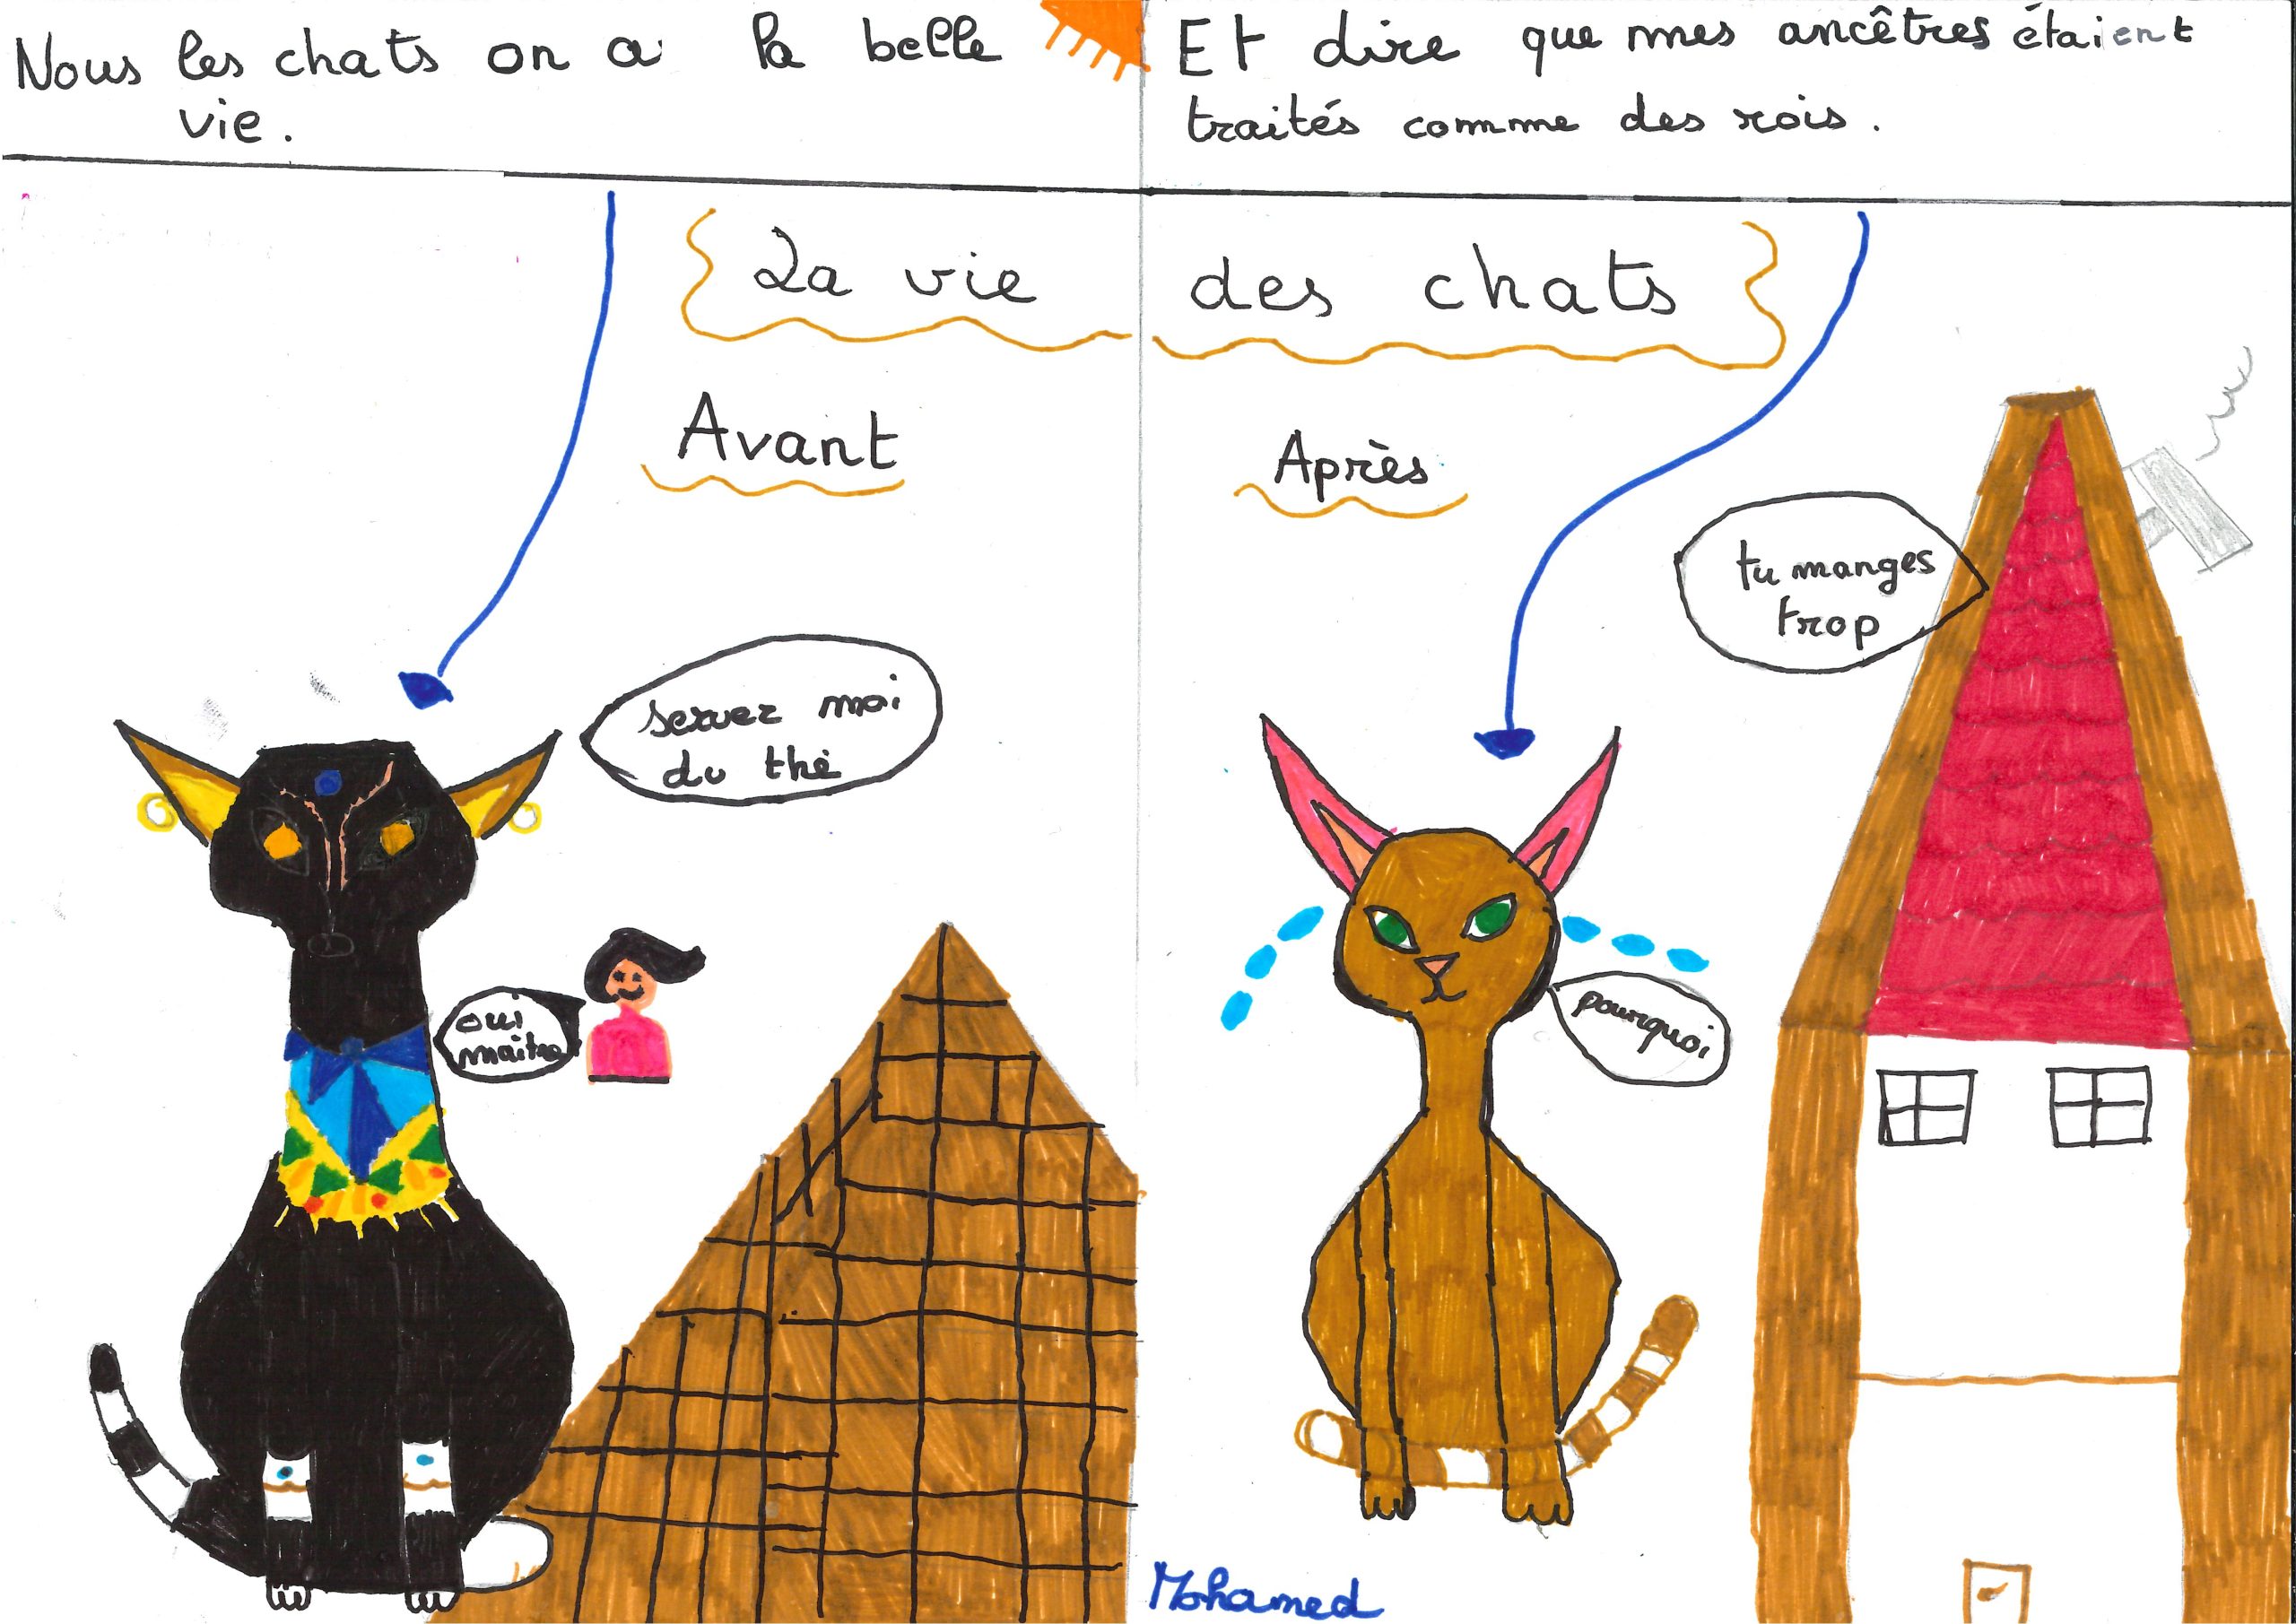 Nous les chats on a la belle
vie.
Et dire que mes ancêtres étaient
traités comme des rois.
La vie des chats
Avant
Après
servez moi
du thé
oui
maitre
tu manges
trop
pourquoi
Mohamed